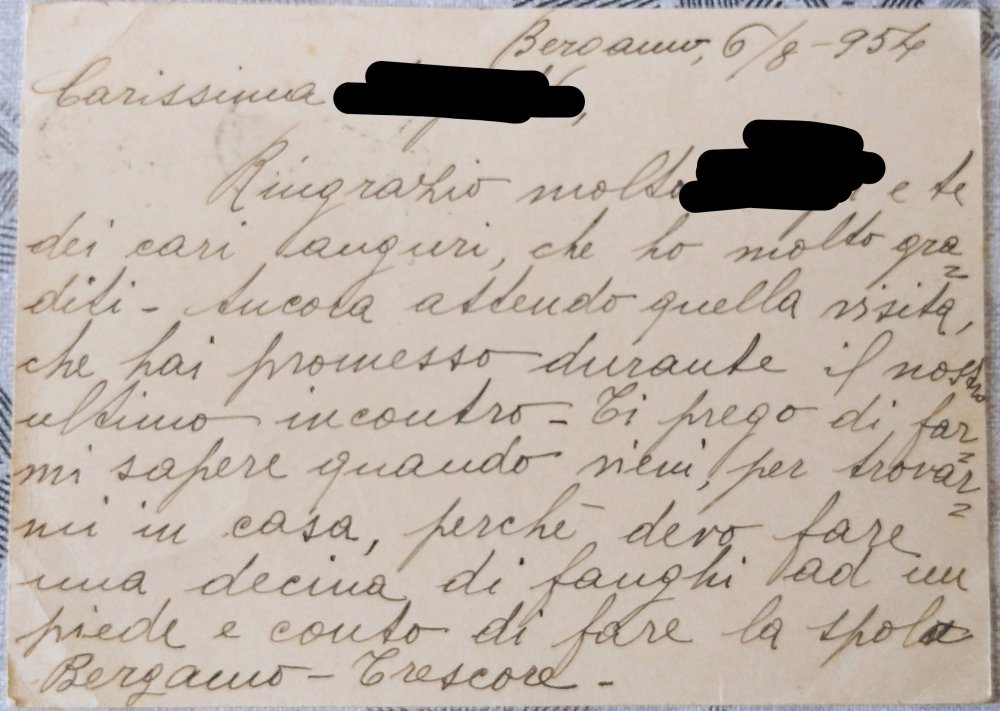 Bergamo, 6/8-954
Carissima
Ringrazio molto e te
dei cari auguri, che ho molto gra=
diti - Ancora attendo quella visita,
che hai promesso durante il nostro
ultimo incontro - Ti prego di far=
mi sapere quando vieni, per trovar=
mi in casa, perchè devo fare
una decina di fanghi ad un
piede e conto di fare la spola
Bergamo - Trescore -